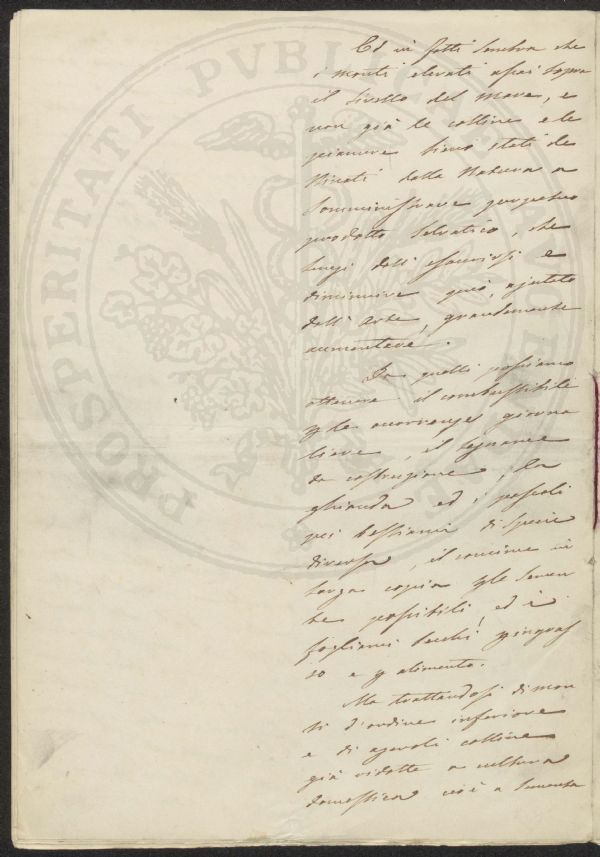 Ed in fatti sembra che
i monti elevati assai sopra
il livello del mare, e
non già le colline e le
pianure sieno stati de
stinati dalla Natura a
somministrare perpetuo
prodotto selvatico, che
lungi dall'esaurirsi e
diminuire può, ajutato
dall'Arte, grandemente
aumentare.
Da quelli possiamo
ottenere il combustibile
p le occorrenze giorna
liere, il legname
da costruzione, la
ghianda ed i pascoli
pei bestiami di specie
diverse, il concime in
larga copia p le semen
te possibili, ed i
fogliami secchi p ingras
so e p alimento.
Ma trattandosi di mon
ti d'ordine inferiore
e di agevoli colline
già ridotte a cultura
domestica cioè a sementa
PROSPERITATI PVBLICAE AVGENDAE